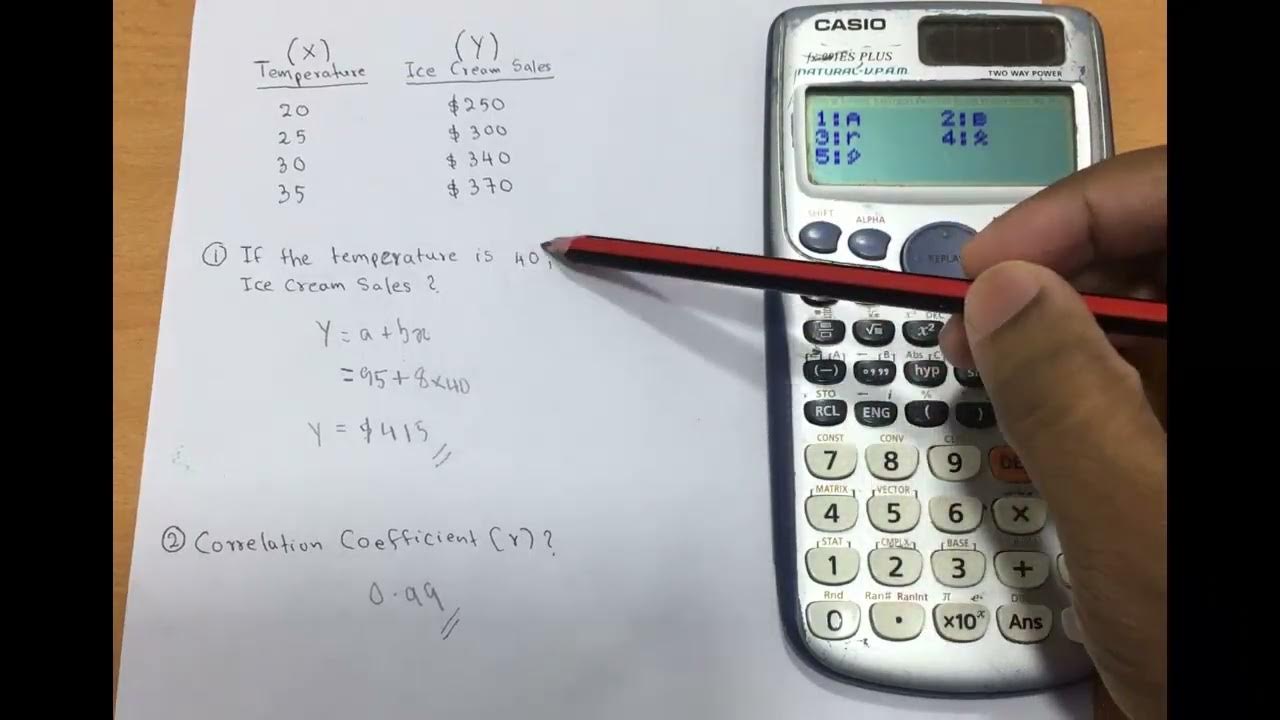 (X) (Y)
Temperature Ice Cream Sales
20 $250
25 $300
30 $340
35 $370
① If the temperature is 40,
Ice Cream Sales ?
Y = a + bx
= 95 + 8 x 40
Y = $415
② Correlation Coefficient (r) ?
0.99
CASIO
ES PLUS
NATURAL-V.P.A.M.
TWO WAY POWER
1:A 2:B
3:r 4:x̂
5:ŷ
SHIFT ALPHA
REPLAY
√x x²
(A) (B) Abs C
(−) hyp
STO i %
RCL ENG ( )
CONST CONV
7 8 9
MATRIX VECTOR
4 5 6 ×
STAT CMPLX BASE
1 2 3 +
Rnd Ran# RanInt π e
0 . ×10ˣ Ans